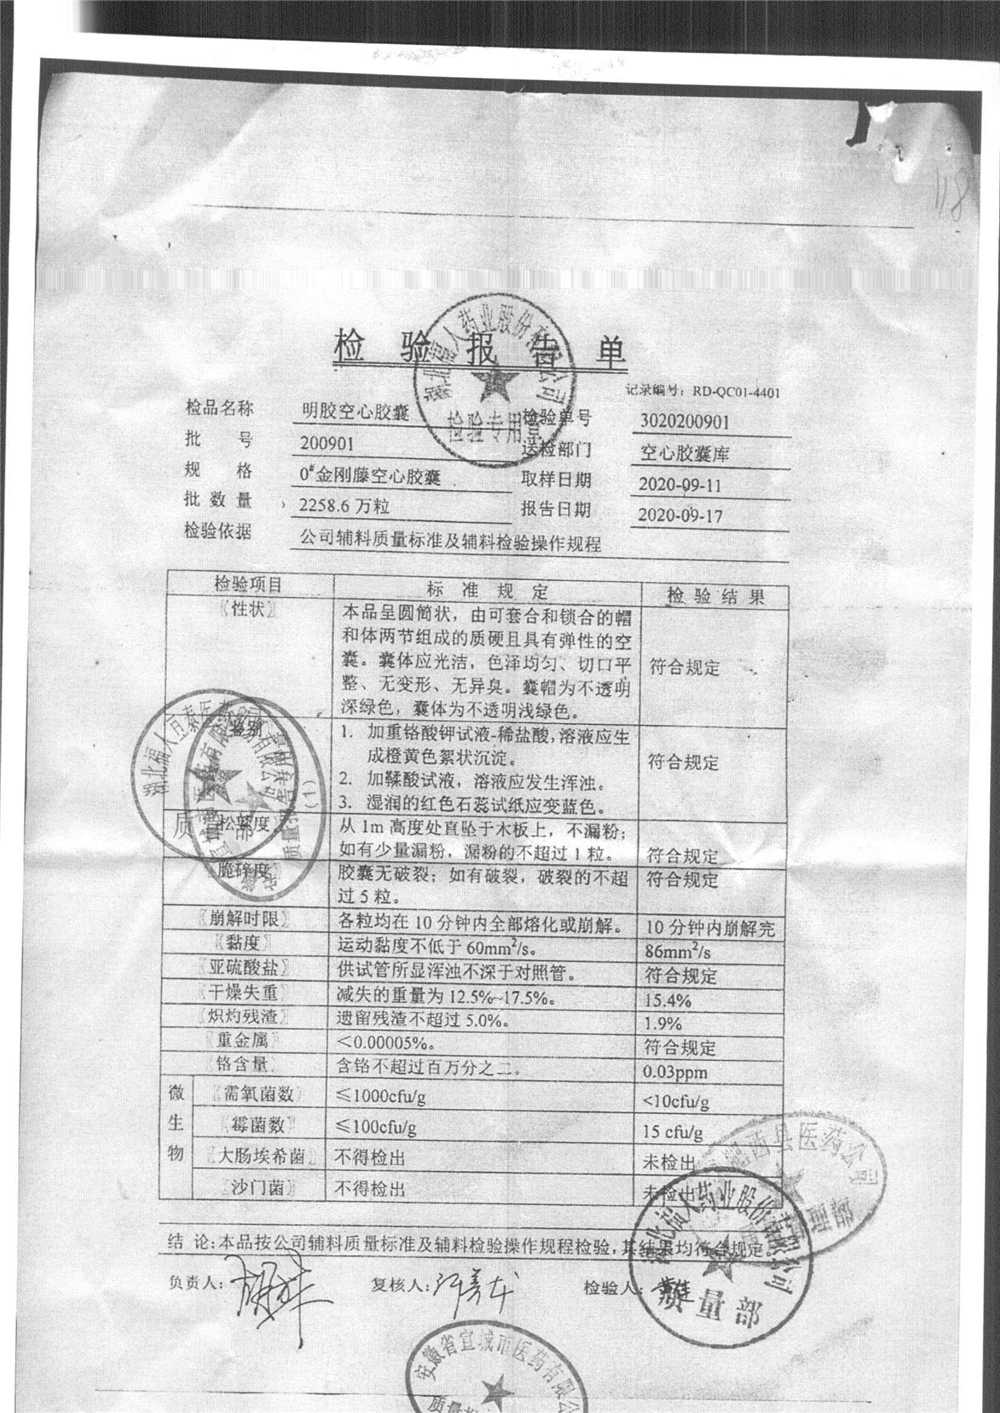 118
检验报告单
湖北福人药业股份有限公司
检验专用
记录编号：RD-QC01-4401
检品名称 明胶空心胶囊 检验单号 3020200901
批 号 200901 送检部门 空心胶囊库
规 格 0#金刚藤空心胶囊 取样日期 2020-09-11
批数量 2258.6万粒 报告日期 2020-09-17
检验依据 公司辅料质量标准及辅料检验操作规程
检验项目 标准规定 检验结果
〖性状〗 本品呈圆筒状，由可套合和锁合的帽
和体两节组成的质硬且具有弹性的空
囊。囊体应光洁，色泽均匀、切口平 符合规定
整、无变形、无异臭。囊帽为不透明
深绿色，囊体为不透明浅绿色。
鉴别 1. 加重铬酸钾试液-稀盐酸,溶液应生
成橙黄色絮状沉淀。 符合规定
2. 加鞣酸试液，溶液应发生浑浊。
3. 湿润的红色石蕊试纸应变蓝色。
松紧度 从1m高度处直坠于木板上，不漏粉；
如有少量漏粉，漏粉的不超过1粒。 符合规定
脆碎度 胶囊无破裂；如有破裂，破裂的不超 符合规定
过5粒。
〖崩解时限〗 各粒均在10分钟内全部熔化或崩解。 10分钟内崩解完
〖黏度〗 运动黏度不低于60mm²/s。 86mm²/s
〖亚硫酸盐〗 供试管所显浑浊不深于对照管。 符合规定
〖干燥失重〗 减失的重量为12.5%~17.5%。 15.4%
〖炽灼残渣〗 遗留残渣不超过5.0%。 1.9%
〖重金属〗 <0.00005%。 符合规定
〖铬含量〗 含铬不超过百万分之二。 0.03ppm
微生物 〖需氧菌数〗 ≤1000cfu/g <10cfu/g
〖霉菌数〗 ≤100cfu/g 15 cfu/g
〖大肠埃希菌〗 不得检出 未检出
〖沙门菌〗 不得检出 未检出
结 论:本品按公司辅料质量标准及辅料检验操作规程检验,其结果均符合规定。
负责人: 复核人: 检验人:
湖北福人药业股份有限公司
质量部
安徽省宣城市医药有限公